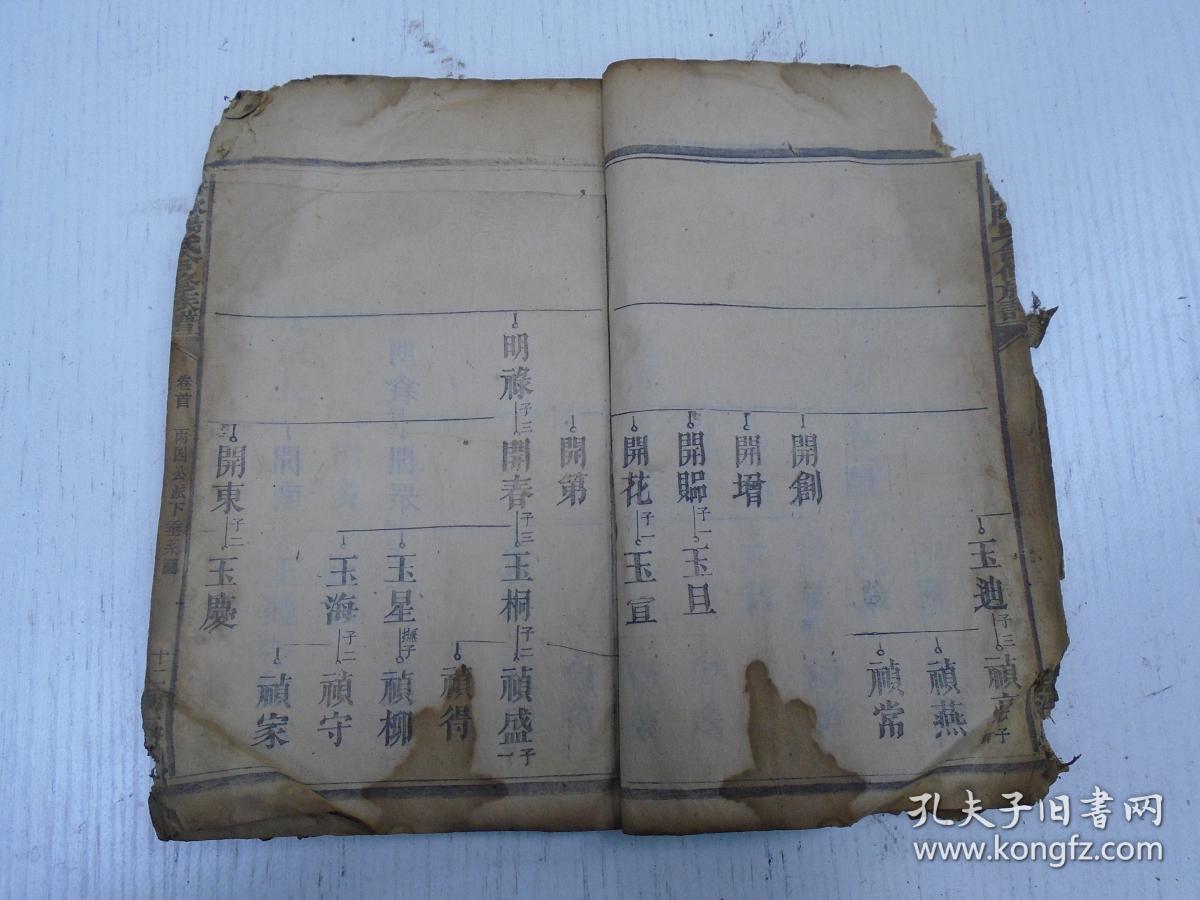 玉迪子三
禎
子
禎燕
禎常
開創
開增
開賜子一玉旦
開花子一玉宣
開第
明祿子三開春子三玉桐子二禎盛子一
禎得
玉星撫子禎柳
玉海子二禎守
禎家
開東子二玉慶
氏合修族譜
卷首
公派下垂系圖
十二
孔夫子旧书网
www.kongfz.com